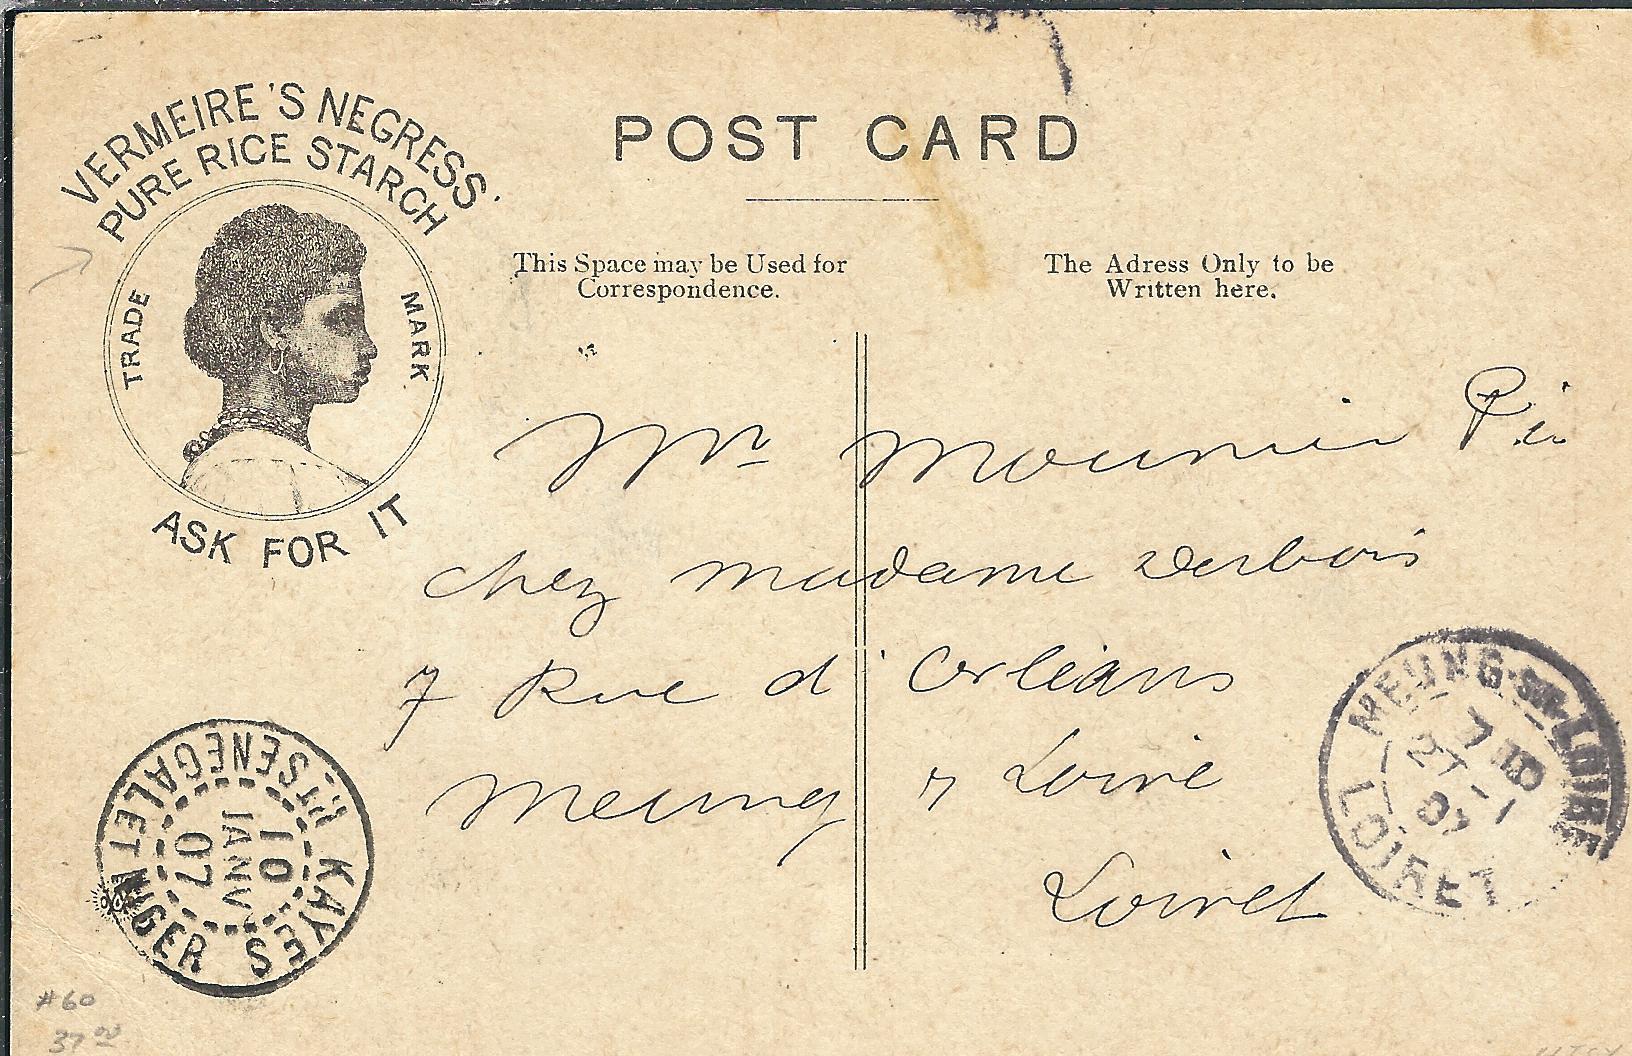 VERMEIRE'S NEGRESS
PURE RICE STARCH
TRADE MARK
ASK FOR IT
POST CARD
This Space may be Used for
Correspondence.
The Adress Only to be
Written here.
Mr Mounier
chez madame Derbois
7 Rue d'Orléans
Meung s/ Loire
Loiret
KAYES
SENEGAL ET NIGER
10
JANV
07
MEUNG-SUR-LOIRE
27-1
07
LOIRET
#60
37 00